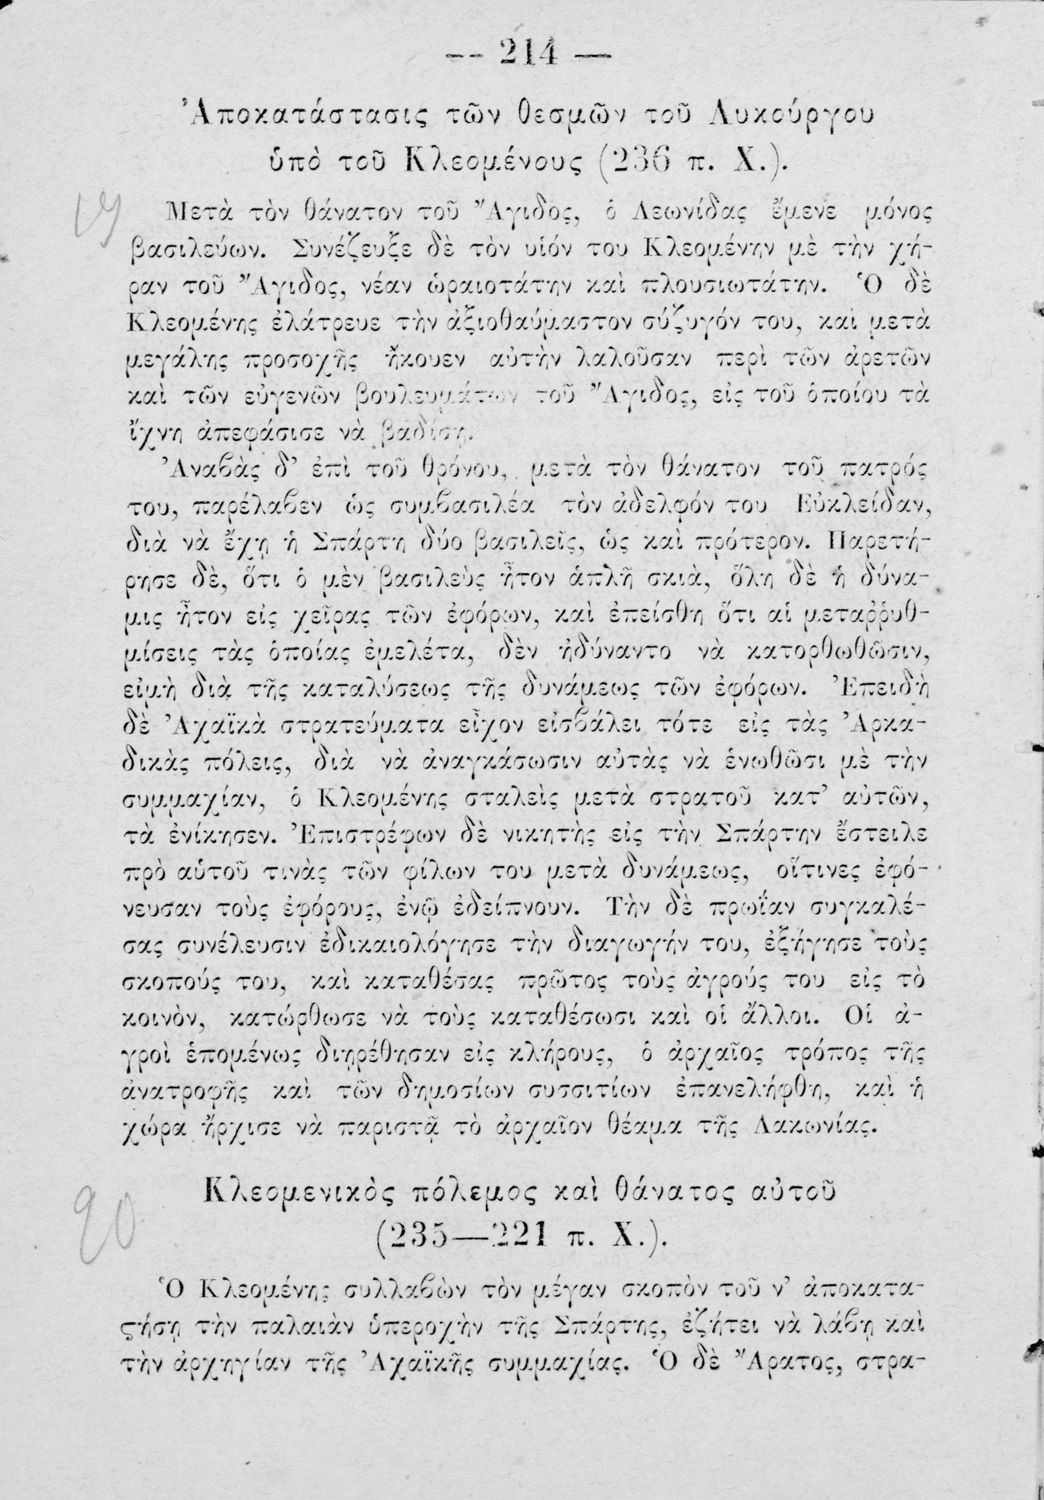 -- 214 —
Ἀποκατάστασις τῶν θεσμῶν τοῦ Λυκούργου
ὑπὸ τοῦ Κλεομένους (236 π. Χ.).
19
Μετὰ τὸν θάνατον τοῦ Ἄγιδος, ὁ Λεωνίδας ἔμενε μόνος
βασιλεύων. Συνέζευξε δὲ τὸν υἱόν του Κλεομένην μὲ τὴν χή-
ραν τοῦ Ἄγιδος, νέαν ὡραιοτάτην καὶ πλουσιωτάτην. Ὁ δὲ
Κλεομένης ἐλάτρευε τὴν ἀξιοθαύμαστον σύζυγόν του, καὶ μετὰ
μεγάλης προσοχῆς ἤκουεν αὐτὴν λαλοῦσαν περὶ τῶν ἀρετῶν
καὶ τῶν εὐγενῶν βουλευμάτων τοῦ Ἄγιδος, εἰς τοῦ ὁποίου τὰ
ἴχνη ἀπεφάσισε νὰ βαδίσῃ.
Ἀναβὰς δ’ ἐπὶ τοῦ θρόνου, μετὰ τὸν θάνατον τοῦ πατρός
του, παρέλαβεν ὡς συμβασιλέα τὸν ἀδελφόν του Εὐκλείδαν,
διὰ νὰ ἔχῃ ἡ Σπάρτη δύο βασιλεῖς, ὡς καὶ πρότερον. Παρετή-
ρησε δὲ, ὅτι ὁ μὲν βασιλεὺς ἦτον ἁπλῆ σκιὰ, ὅλη δὲ ἡ δύνα-
μις ἦτον εἰς χεῖρας τῶν ἐφόρων, καὶ ἐπείσθη ὅτι αἱ μεταῤῥυθ-
μίσεις τὰς ὁποίας ἐμελέτα, δὲν ἠδύναντο νὰ κατορθωθῶσιν,
εἰμὴ διὰ τῆς καταλύσεως τῆς δυνάμεως τῶν ἐφόρων. Ἐπειδὴ
δὲ Ἀχαϊκὰ στρατεύματα εἶχον εἰσβάλει τότε εἰς τὰς Ἀρκα-
δικὰς πόλεις, διὰ νὰ ἀναγκάσωσιν αὐτὰς νὰ ἑνωθῶσι μὲ τὴν
συμμαχίαν, ὁ Κλεομένης σταλεὶς μετὰ στρατοῦ κατ’ αὐτῶν,
τὰ ἐνίκησεν. Ἐπιστρέφων δὲ νικητὴς εἰς τὴν Σπάρτην ἔστειλε
πρὸ αὑτοῦ τινὰς τῶν φίλων του μετὰ δυνάμεως, οἵτινες ἐφό-
νευσαν τοὺς ἐφόρους, ἐνῷ ἐδείπνουν. Τὴν δὲ πρωΐαν συγκαλέ-
σας συνέλευσιν ἐδικαιολόγησε τὴν διαγωγήν του, ἐξήγησε τοὺς
σκοπούς του, καὶ καταθέσας πρῶτος τοὺς ἀγρούς του εἰς τὸ
κοινὸν, κατώρθωσε νὰ τοὺς καταθέσωσι καὶ οἱ ἄλλοι. Οἱ ἀ-
γροὶ ἑπομένως διῃρέθησαν εἰς κλήρους, ὁ ἀρχαῖος τρόπος τῆς
ἀνατροφῆς καὶ τῶν δημοσίων συσσιτίων ἐπανελήφθη, καὶ ἡ
χώρα ἤρχισε νὰ παριστᾷ τὸ ἀρχαῖον θέαμα τῆς Λακωνίας.
20
Κλεομενικὸς πόλεμος καὶ θάνατος αὐτοῦ
(235—221 π. Χ.).
Ὁ Κλεομένης συλλαβὼν τὸν μέγαν σκοπὸν τοῦ ν’ ἀποκατα-
ϛήσῃ τὴν παλαιὰν ὑπεροχὴν τῆς Σπάρτης, ἐζήτει νὰ λάβῃ καὶ
τὴν ἀρχηγίαν τῆς Ἀχαϊκῆς συμμαχίας. Ὁ δὲ Ἄρατος, στρα-